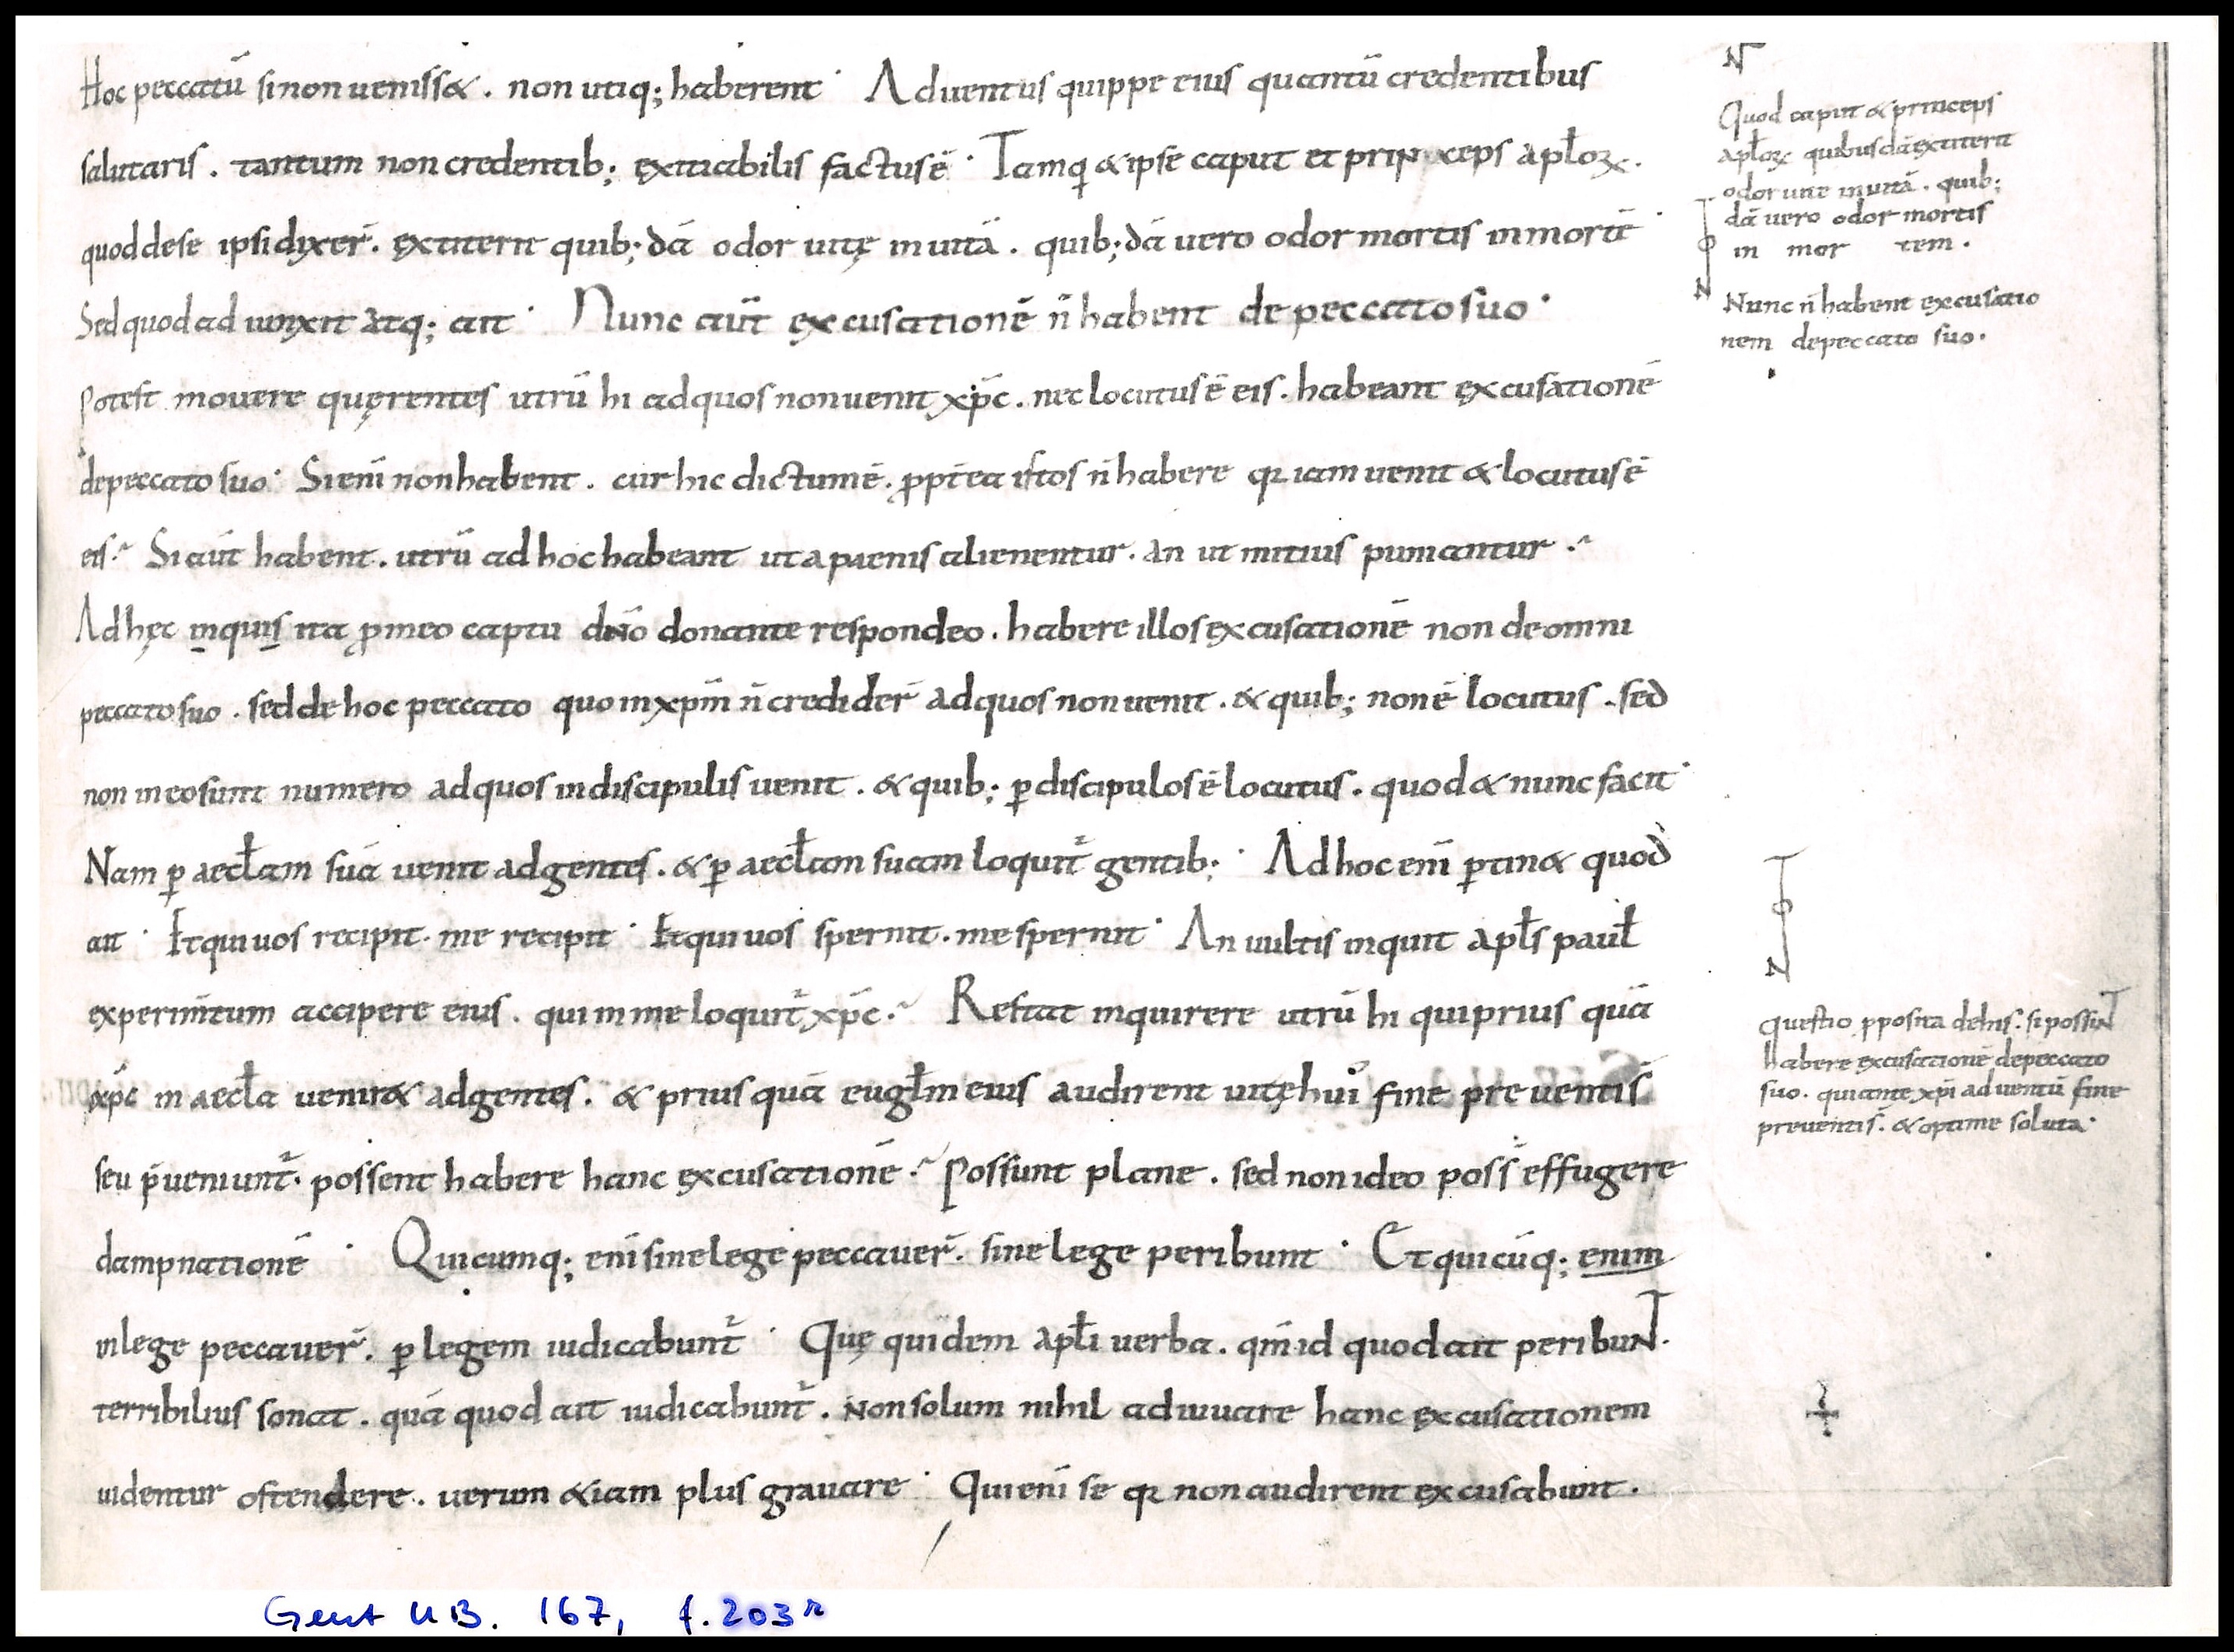 Hoc peccatū si non uenissæ. non utiq; haberent· Aduentus quippe eius quantū credentibus
salutaris. tantum non credentib; ęxitiabilis factus ē· Tamq̄ & ipse caput et princeps aplōꝝ.
quod de se ipsi dixer̄. ęxtiterit quib;dā odor uitę in uitā. quib;dā uero odor mortis in mortē·
Sed quod adiunxit atq; ait· Nunc aūt ęxcusationē n̄ habent de peccato suo·
Potest mouere quęrentes utrū hi ad quos non uenit xp̄c. nec locutus ē eis. habeant ęxcusationē
de peccato suo· Si enī non habent. cur hic dictum ē. ꝓpt̄ea istos n̄ habere qꝛ iam uenit & locutus ē
eis·~ Si aūt habent. utrū ad hoc habeant ut a paenis alienentur. an ut mitius puniantur·~
Ad hęc inquis ita ꝓ meo captu dn̄o donante respondeo. habere illos ęxcusationē non de omni
peccato suo. sed de hoc peccato quo in xp̄m n̄ credider̄ ad quos non uenit. & quib; non ē locutus. sed
non in eo sunt numero ad quos in discipulis uenit. & quib; ꝑ discipulos ē locutus. quod & nunc facit·
Nam ꝑ aecłam suā uenit ad gentes. & ꝑ aecłam suam loquit̄ gentib;· Ad hoc enī ꝑtin& quod
ait· Et qui uos recipit. me recipit· Et qui uos spernit. me spernit· An uultis inquit apłs pauł
experim̄tum accipere eius. qui in me loquit̄ xp̄c·~ Restat inquirere utrū hi qui prius quā
xp̄c in aecła uenir& ad gentes. & prius quā eugłm eius audirent uitę hui᾽ fine preuentis̄
seu p̄ueniunt̄. possent habere hanc ęxcusationē·~ Possunt plane. sed non ideo poss̄ effugere
dampnationē· Quicumq; enī sine lege peccauer̄. sine lege peribunt· Et quicūq; enim
in lege peccauer̄. ꝑ legem iudicabunt̄· Quę quidem apłi uerba. qm̄ id quod ait peribunt.
terribilius sonat. quā quod ait iudicabunt̄. non solum nihil adiuuare hanc ęxcusationem
uidentur ostendere. uerum &iam plus grauare· Qui enī se qꝛ non audirent excusabunt.
N
Quod caput & princeps
apłoꝝ quibusdā extiterit
odor uite in uitā. quib;
dā uero odor mortis
in mor tem.
N
Nunc n̄ habent excusatio
nem de peccato suo.
N
Questio ꝓposita de his. si possint
habere excusationē de peccato
suo. qui ante xp̄i aduentū fine
preuentis̄. & optime soluta·
Gent UB. 167, f. 203r